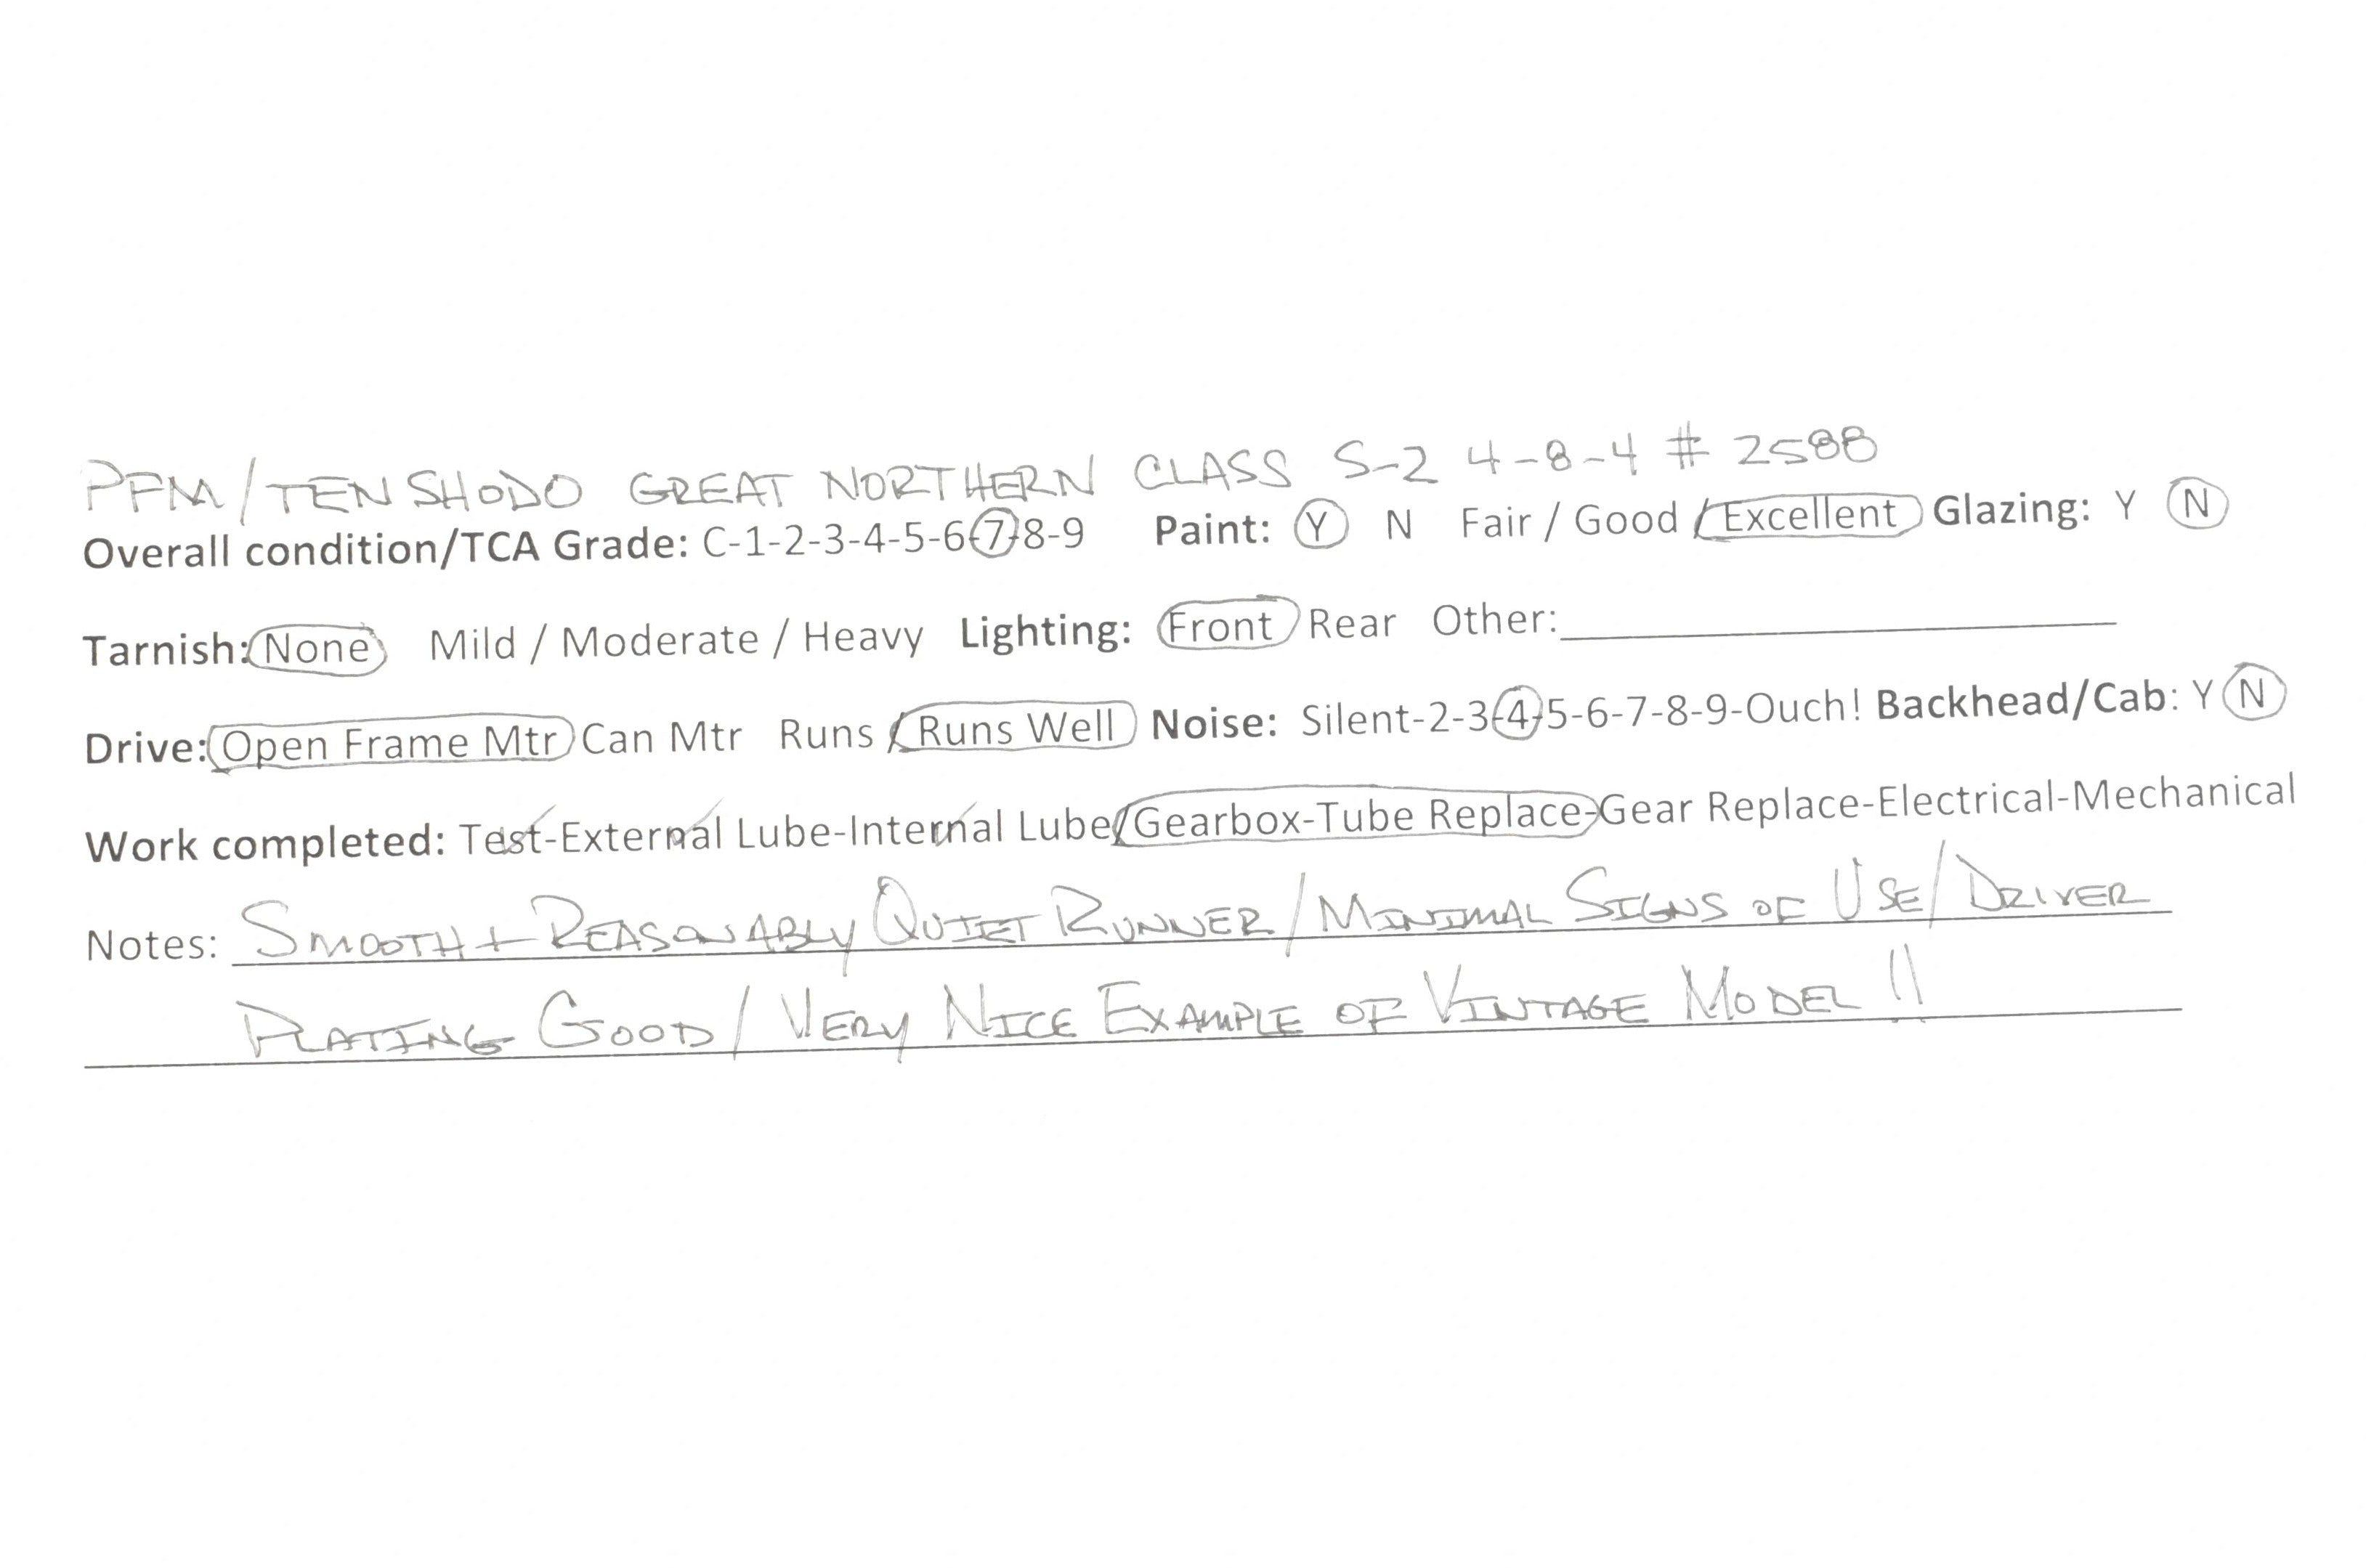 PFM/TENSHODO GREAT NORTHERN CLASS S-2 4-8-4 # 2588
Overall condition/TCA Grade: C-1-2-3-4-5-6-7-8-9 Paint: Y N Fair / Good / Excellent Glazing: Y N
Tarnish: None Mild / Moderate / Heavy Lighting: Front / Rear Other:
Drive: Open Frame Mtr Can Mtr Runs / Runs Well Noise: Silent-2-3-4-5-6-7-8-9-Ouch! Backhead/Cab: Y N
Work completed: Test-External Lube-Internal Lube/Gearbox-Tube Replace-Gear Replace-Electrical-Mechanical
Notes: SMOOTH + REASONABLY QUIET RUNNER/MINIMAL SIGNS OF USE/DRIVER
PLATING GOOD/VERY NICE EXAMPLE OF VINTAGE MODEL!!